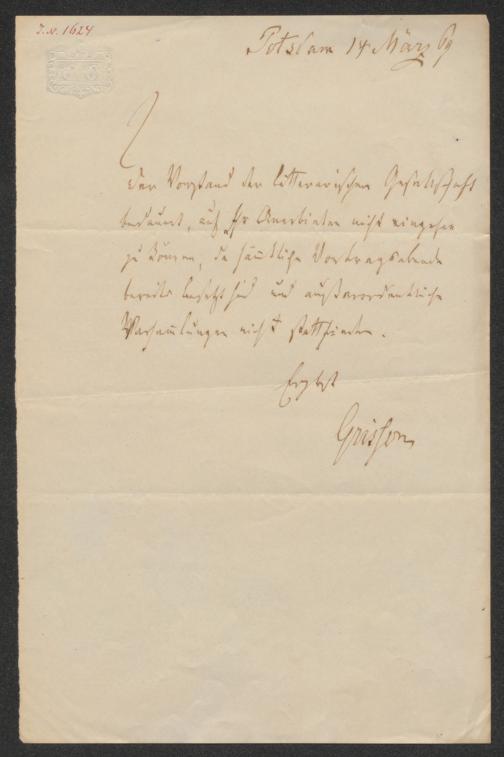 J. N. 1624
Potsdam 14 März 69
Der Vorstand der litterarischen Gesellschaft
bedauert, auf Ihr Anerbieten nicht eingehen
zu können, da sämtliche Vortragsabende
bereits besetzt sind und außerordentliche
Versammlungen nicht stattfinden.
Ergbst
Grisson